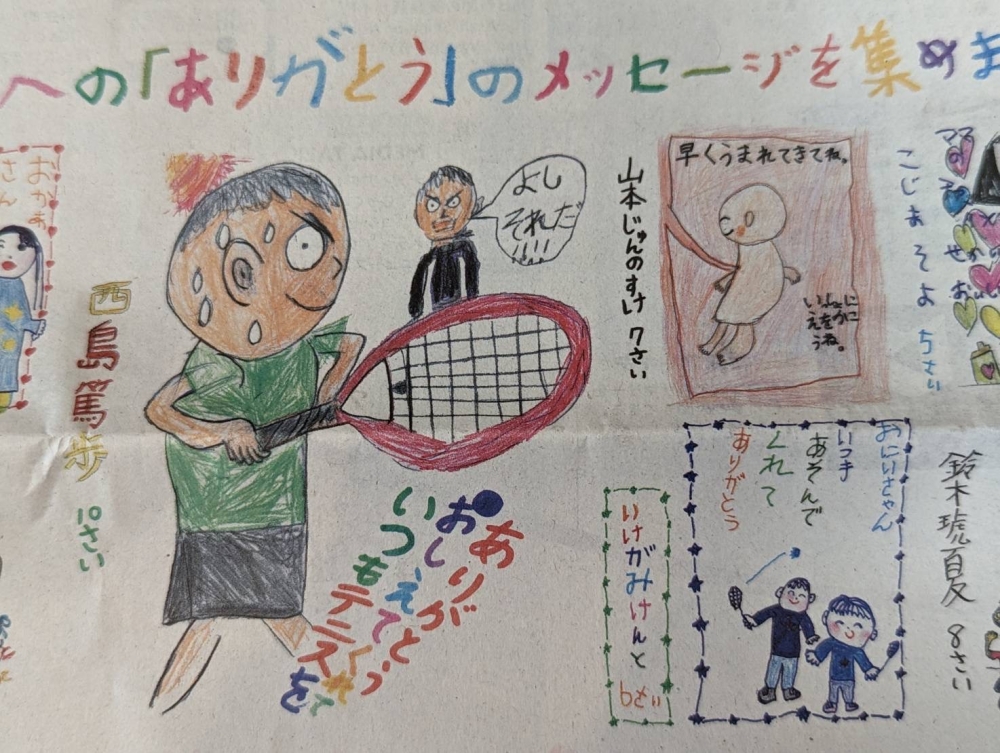 への「ありがとう」のメッセージを集めま
おかあ
さん
西島篤歩 10さい
よし
それだ
!!!!
いつもテニスを
おしえてくれて
ありがとう
山本じゅんのすけ 7さい
早くうまれてきてね。
こじまそよ 5さい
ママ
おにいちゃん
いつも
あそんで
くれて
ありがとう
いけがみけんと 6さい
鈴木琥夏 8さい